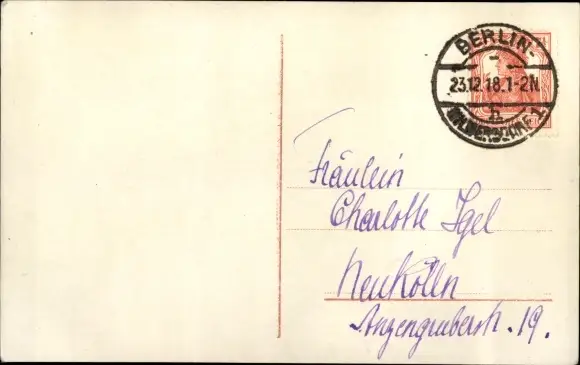 BERLIN-
23.12.18.1-2N.
h.
WILMERSDORF 1
Fräulein
Charlotte Igel
Neukölln
Anzengruberstr. 19.